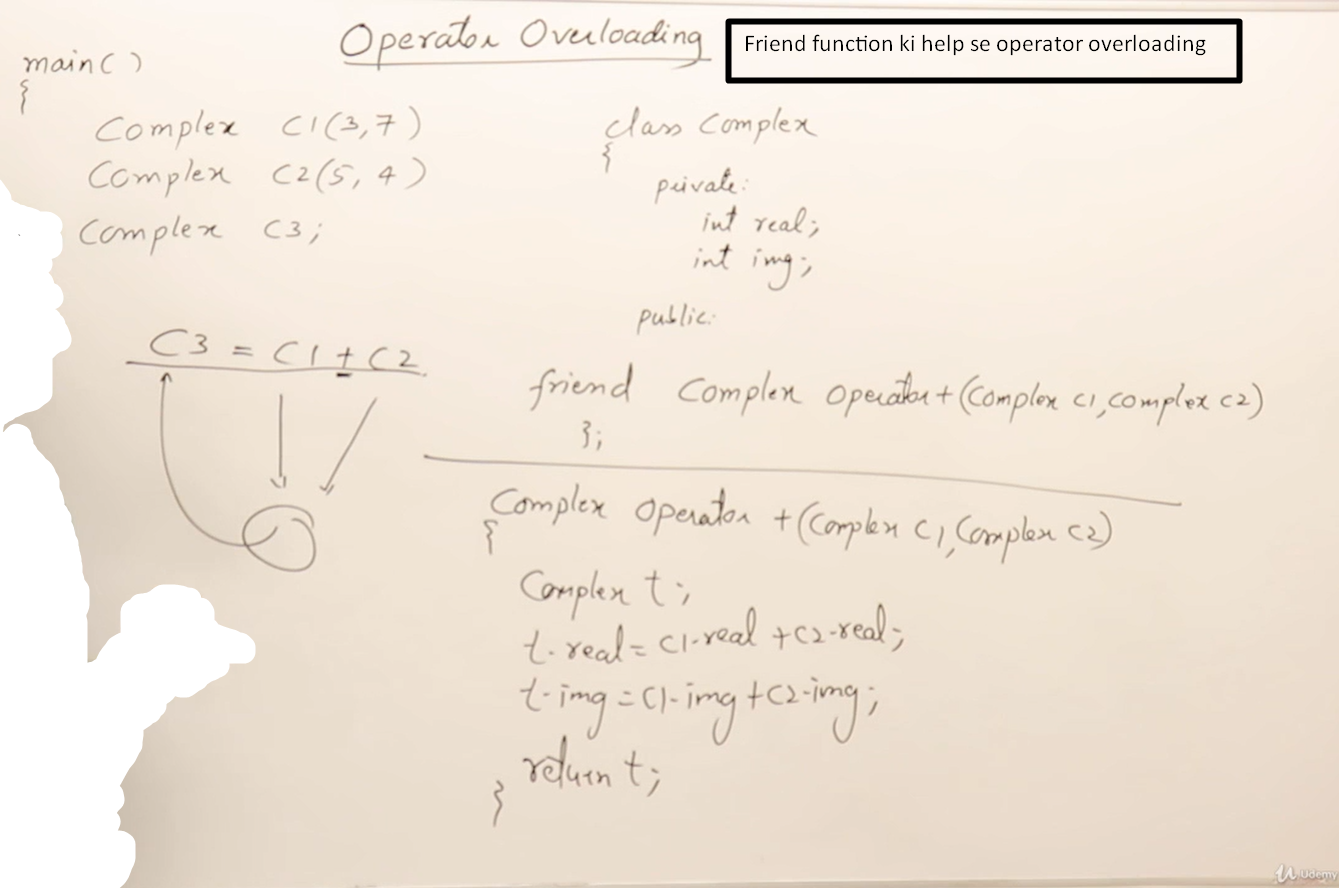 Operator Overloading
Friend function ki help se operator overloading
main( )
{
Complex C1(3,7)
Complex C2(5, 4)
Complex C3;
C3 = C1 + C2
class Complex
{
private:
int real;
int img;
public:
friend Complex Operator+(Complex C1,Complex C2)
};
Complex Operator +(Complex C1,Complex C2)
{
Complex t;
t.real=C1.real+C2.real;
t.img=C1.img+C2.img;
return t;
}
Udemy